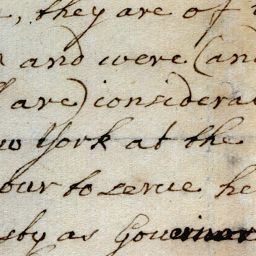 , they are of
and were (an
are) considera
w York at the
our to serve he
sby as Governor